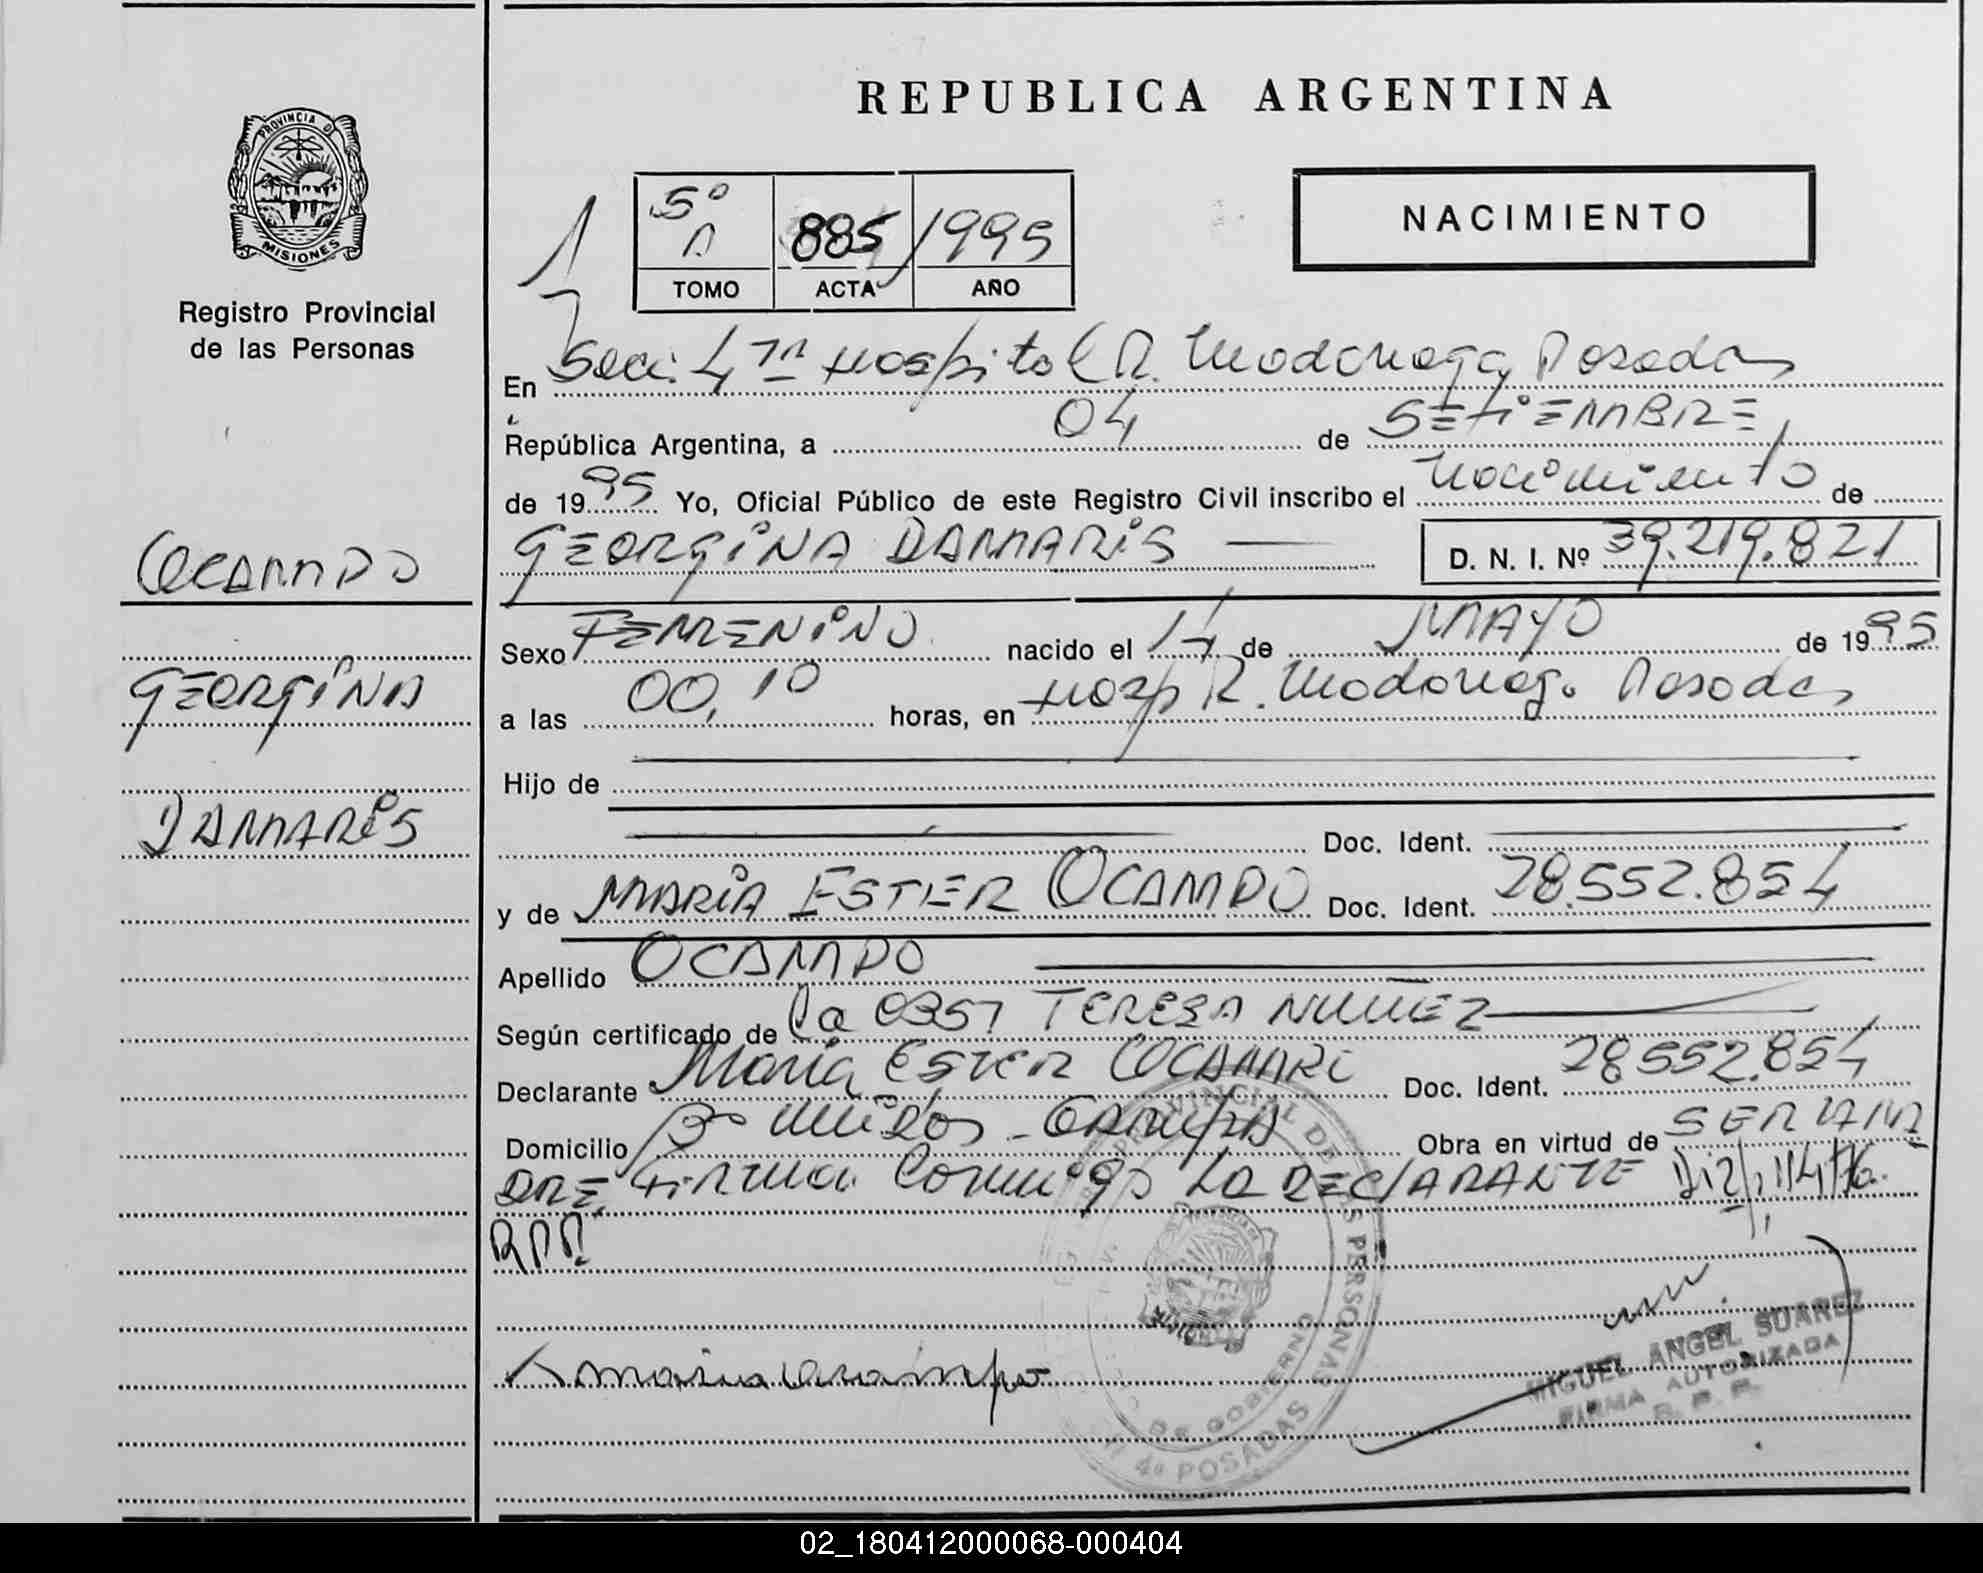 REPUBLICA ARGENTINA
PROVINCIA DE
MISIONES
Registro Provincial
de las Personas
5º
A
885
1995
TOMO
ACTA
AÑO
NACIMIENTO
En Secc. 4ta Hospital R. Madariaga Posadas
República Argentina, a 04 de SETIEMBRE
de 1995 Yo, Oficial Público de este Registro Civil inscribo el nacimiento de
GEORGINA DAMARIS
D. N. I. Nº 39.219.821
OCAMPO
GEORGINA
DAMARIS
Sexo FEMENINO nacido el 14 de MAYO de 1995
a las 00,10 horas, en Hosp R. Madariaga Posadas
Hijo de
Doc. Ident.
y de MARIA ESTER OCAMPO Doc. Ident. 28.552.854
Apellido OCAMPO
Según certificado de La OBST TERESA NUÑEZ
Declarante María ESTER OCAMPO Doc. Ident. 28552.854
Domicilio Bº Unidos Obra en virtud de SER MA
DRE. Firma Conmigo La DECLARANTE
maria ocampo
PROVINCIAL DE LAS PERSONAS
DE GOBIERNO
4º POSADAS
MIGUEL ANGEL SUAREZ
FIRMA AUTORIZADA
R. P. P.
02_180412000068-000404